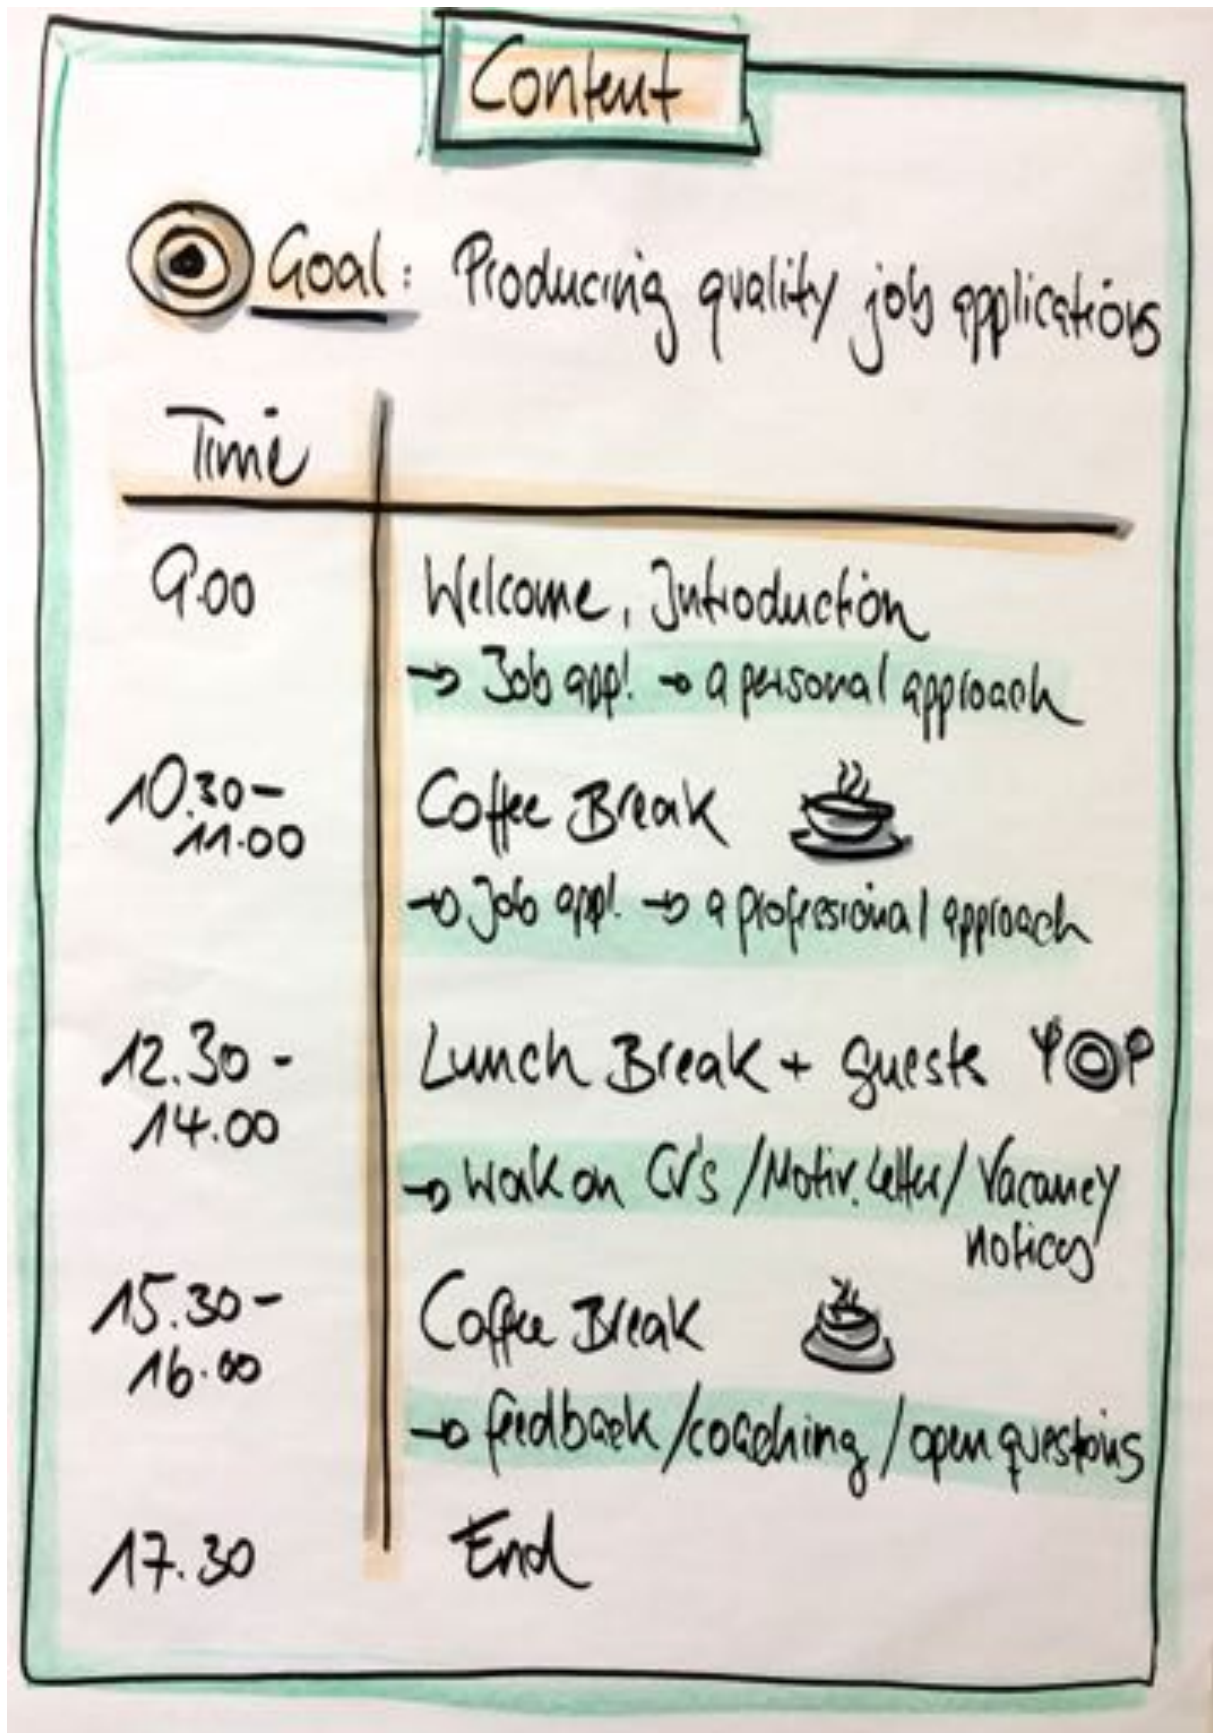 Content
Goal: Producing quality job applications
Time
9.00 Welcome, Introduction
→ Job appl. → a personal approach
10.30-
11.00 Coffee Break
→ Job appl. → a professional approach
12.30-
14.00 Lunch Break + guests
→ Work on CV's / Motiv. letter / Vacancy
notices
15.30-
16.00 Coffee Break
→ feedback / coaching / open questions
17.30 End